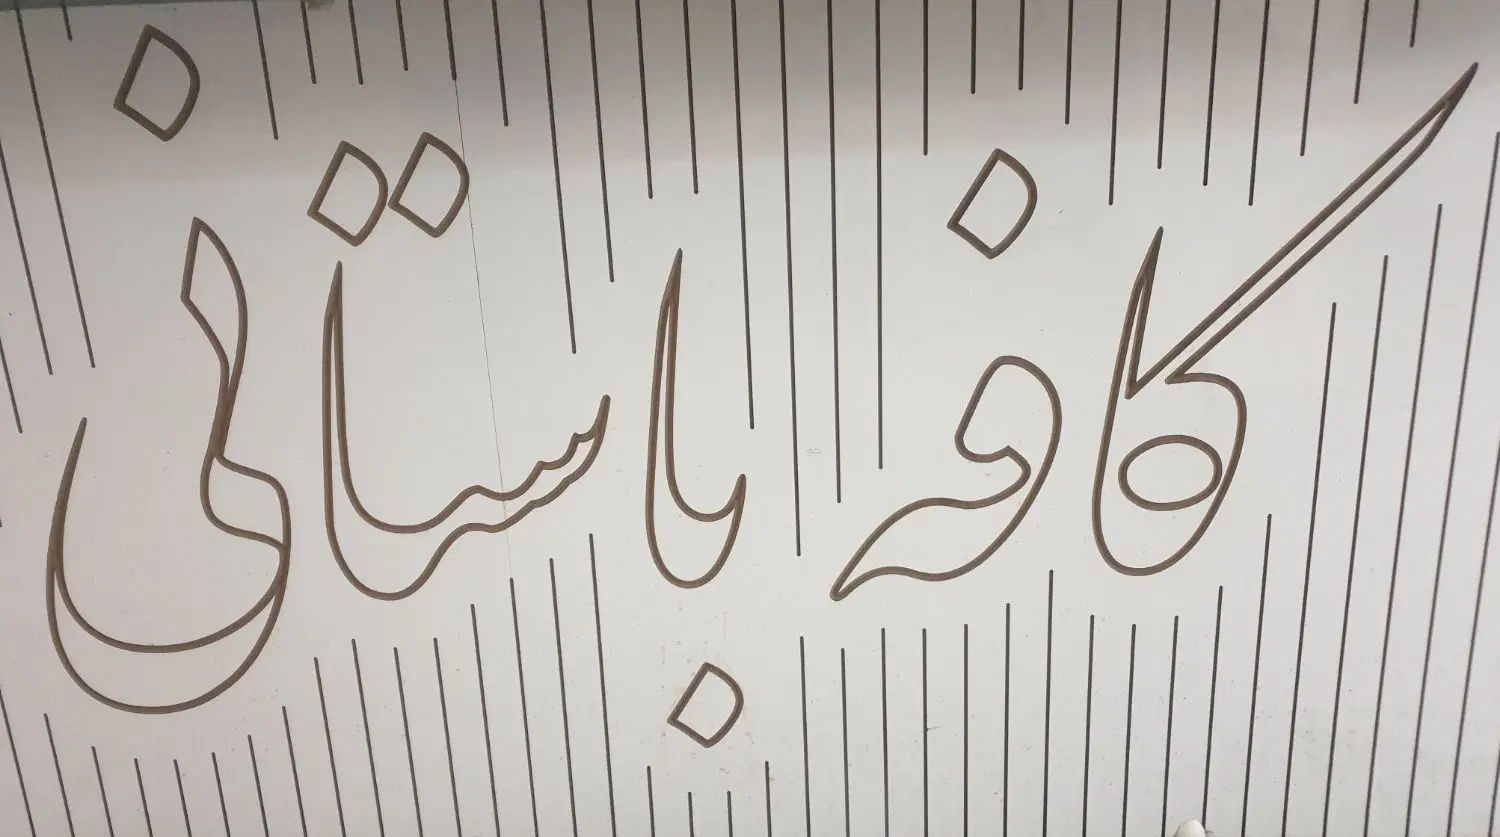 کافه باستانی